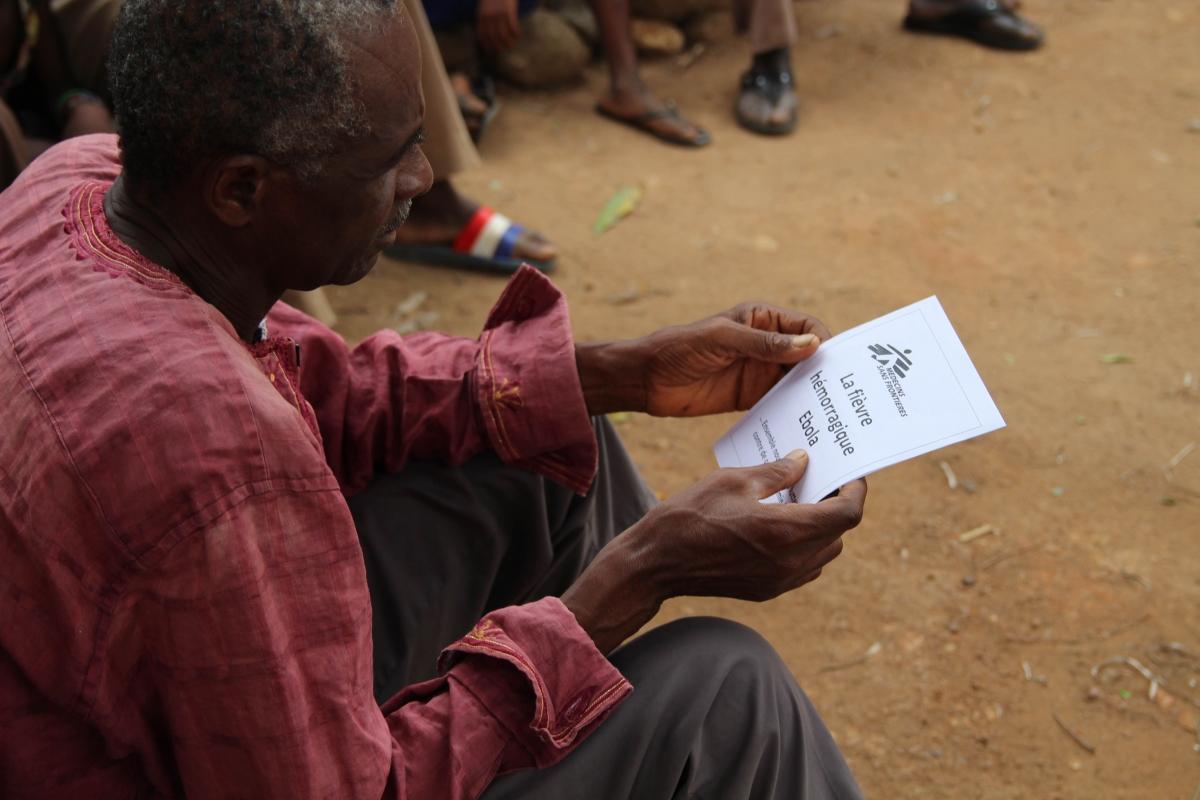 MEDECINS
SANS FRONTIERES
La fièvre
hémorragique
Ebola
Ensemble
contre